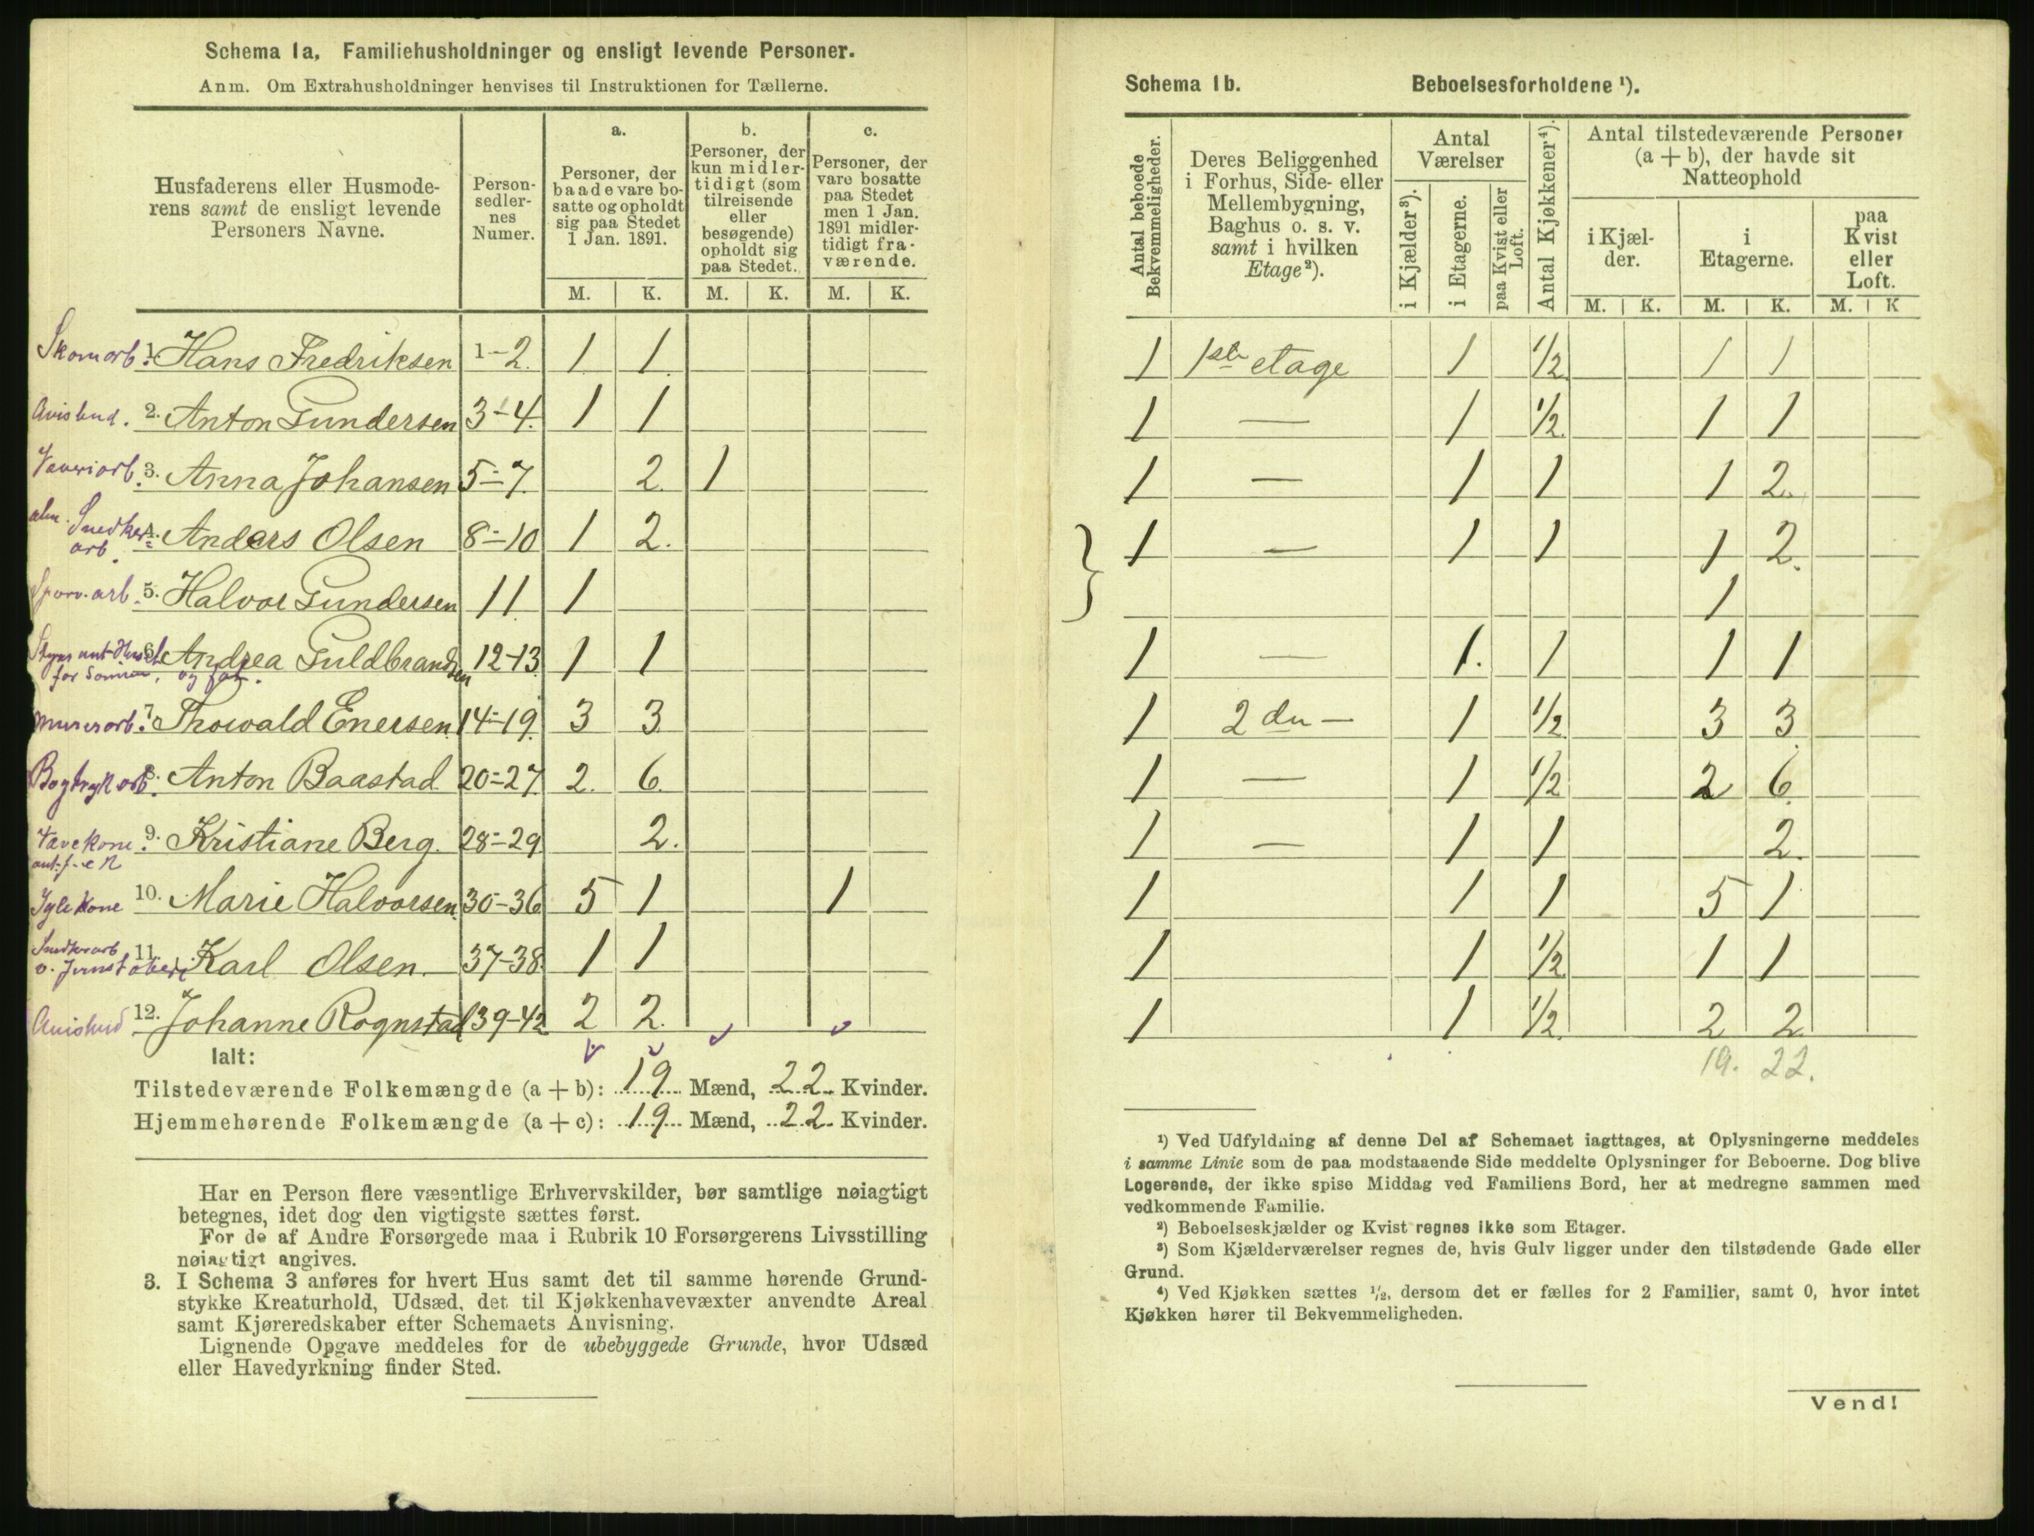 Schema 1a. Familiehusholdninger og ensligt levende Personer.
Anm. Om Extrahusholdninger henvises til Instruktionen for Tællerne.
Husfaderens eller Husmoderens samt de ensligt levende Personers Navne.
Person-sedler-nes Numer.
a. Personer, der baade vare bosatte og opholdt sig paa Stedet 1 Jan. 1891.
b. Personer, der kun midlertidigt (som tilreisende eller besøgende) opholdt sig paa Stedet.
c. Personer, der vare bosatte paa Stedet men 1 Jan. 1891 midlertidigt fraværende.
M. K. M. K. M. K.
Skomarb. 1. Hans Fredriksen 1-2. 1 1
Avisbud. 2. Anton Gundersen 3-4. 1 1
Væveriarb. 3. Anna Johansen 5-7. 2. 1
alm. Snedker arb. 4. Anders Olsen 8-10 1 2.
Sporv. arb. 5. Halvor Gundersen 11 1
6. Andrea Guldbrandsen 12-13 1 1
for Sønnen, og
Murerarb. 7. Thorvald Enersen 14-19. 3 3
Bogtrykarb. 8. Anton Baastad 20-27. 2. 6.
Vævekone. 9. Kristiane Berg. 28-29 2.
10. Marie Halvorsen 30-36 5 1 1
Snedkerarb v. Jernstøberi 11. Karl Olsen. 37-38. 1 1
Avisbud 12. Johanne Rognstad 39-42 2 2
Ialt:
Tilstedeværende Folkemængde (a + b): 19 Mænd, 22 Kvinder.
Hjemmehørende Folkemængde (a + c): 19 Mænd, 22 Kvinder.
Har en Person flere væsentlige Erhvervskilder, bør samtlige nøiagtigt
betegnes, idet dog den vigtigste sættes først.
For de af Andre Forsørgede maa i Rubrik 10 Forsørgerens Livsstilling
nøiagtigt angives.
3. I Schema 3 anføres for hvert Hus samt det til samme hørende Grund-
stykke Kreaturhold, Udsæd, det til Kjøkkenhavevæxter anvendte Areal
samt Kjøreredskaber efter Schemaets Anvisning.
Lignende Opgave meddeles for de ubebyggede Grunde, hvor Udsæd
eller Havedyrkning finder Sted.
Schema 1b. Beboelsesforholdene ¹).
Antal beboede Bekvemmeligheder.
Deres Beliggenhed i Forhus, Side- eller Mellembygning, Baghus o. s. v. samt i hvilken Etage²).
Antal Værelser
i Kjælder³).
i Etagerne.
paa Kvist eller Loft.
Antal Kjøkkener⁴).
Antal tilstedeværende Personer (a + b), der havde sit Natteophold
i Kjælder.
i Etagerne.
paa Kvist eller Loft.
M. K. M. K. M. K
1 1ste etage 1 1/2 1 1
1 — 1 1/2 1 1
1 — 1 1 1 2.
1 — 1 1 1 2.
1
1 — 1. 1 1 1
1 2 du — 1 1/2 3 3
1 — 1 1/2 2 6
1 — 1 1 2.
1 1 1 5 1
1 1 1/2 1 1
1 1 1/2 2 2
19. 22.
¹) Ved Udfyldning af denne Del af Schemaet iagttages, at Oplysningerne meddeles
i samme Linie som de paa modstaaende Side meddelte Oplysninger for Beboerne. Dog blive
Logerende, der ikke spise Middag ved Familiens Bord, her at medregne sammen med
vedkommende Familie.
²) Beboelseskjælder og Kvist regnes ikke som Etager.
³) Som Kjælderværelser regnes de, hvis Gulv ligger under den tilstødende Gade eller
Grund.
⁴) Ved Kjøkken sættes ½, dersom det er fælles for 2 Familier, samt 0, hvor intet
Kjøkken hører til Bekvemmeligheden.
Vend!